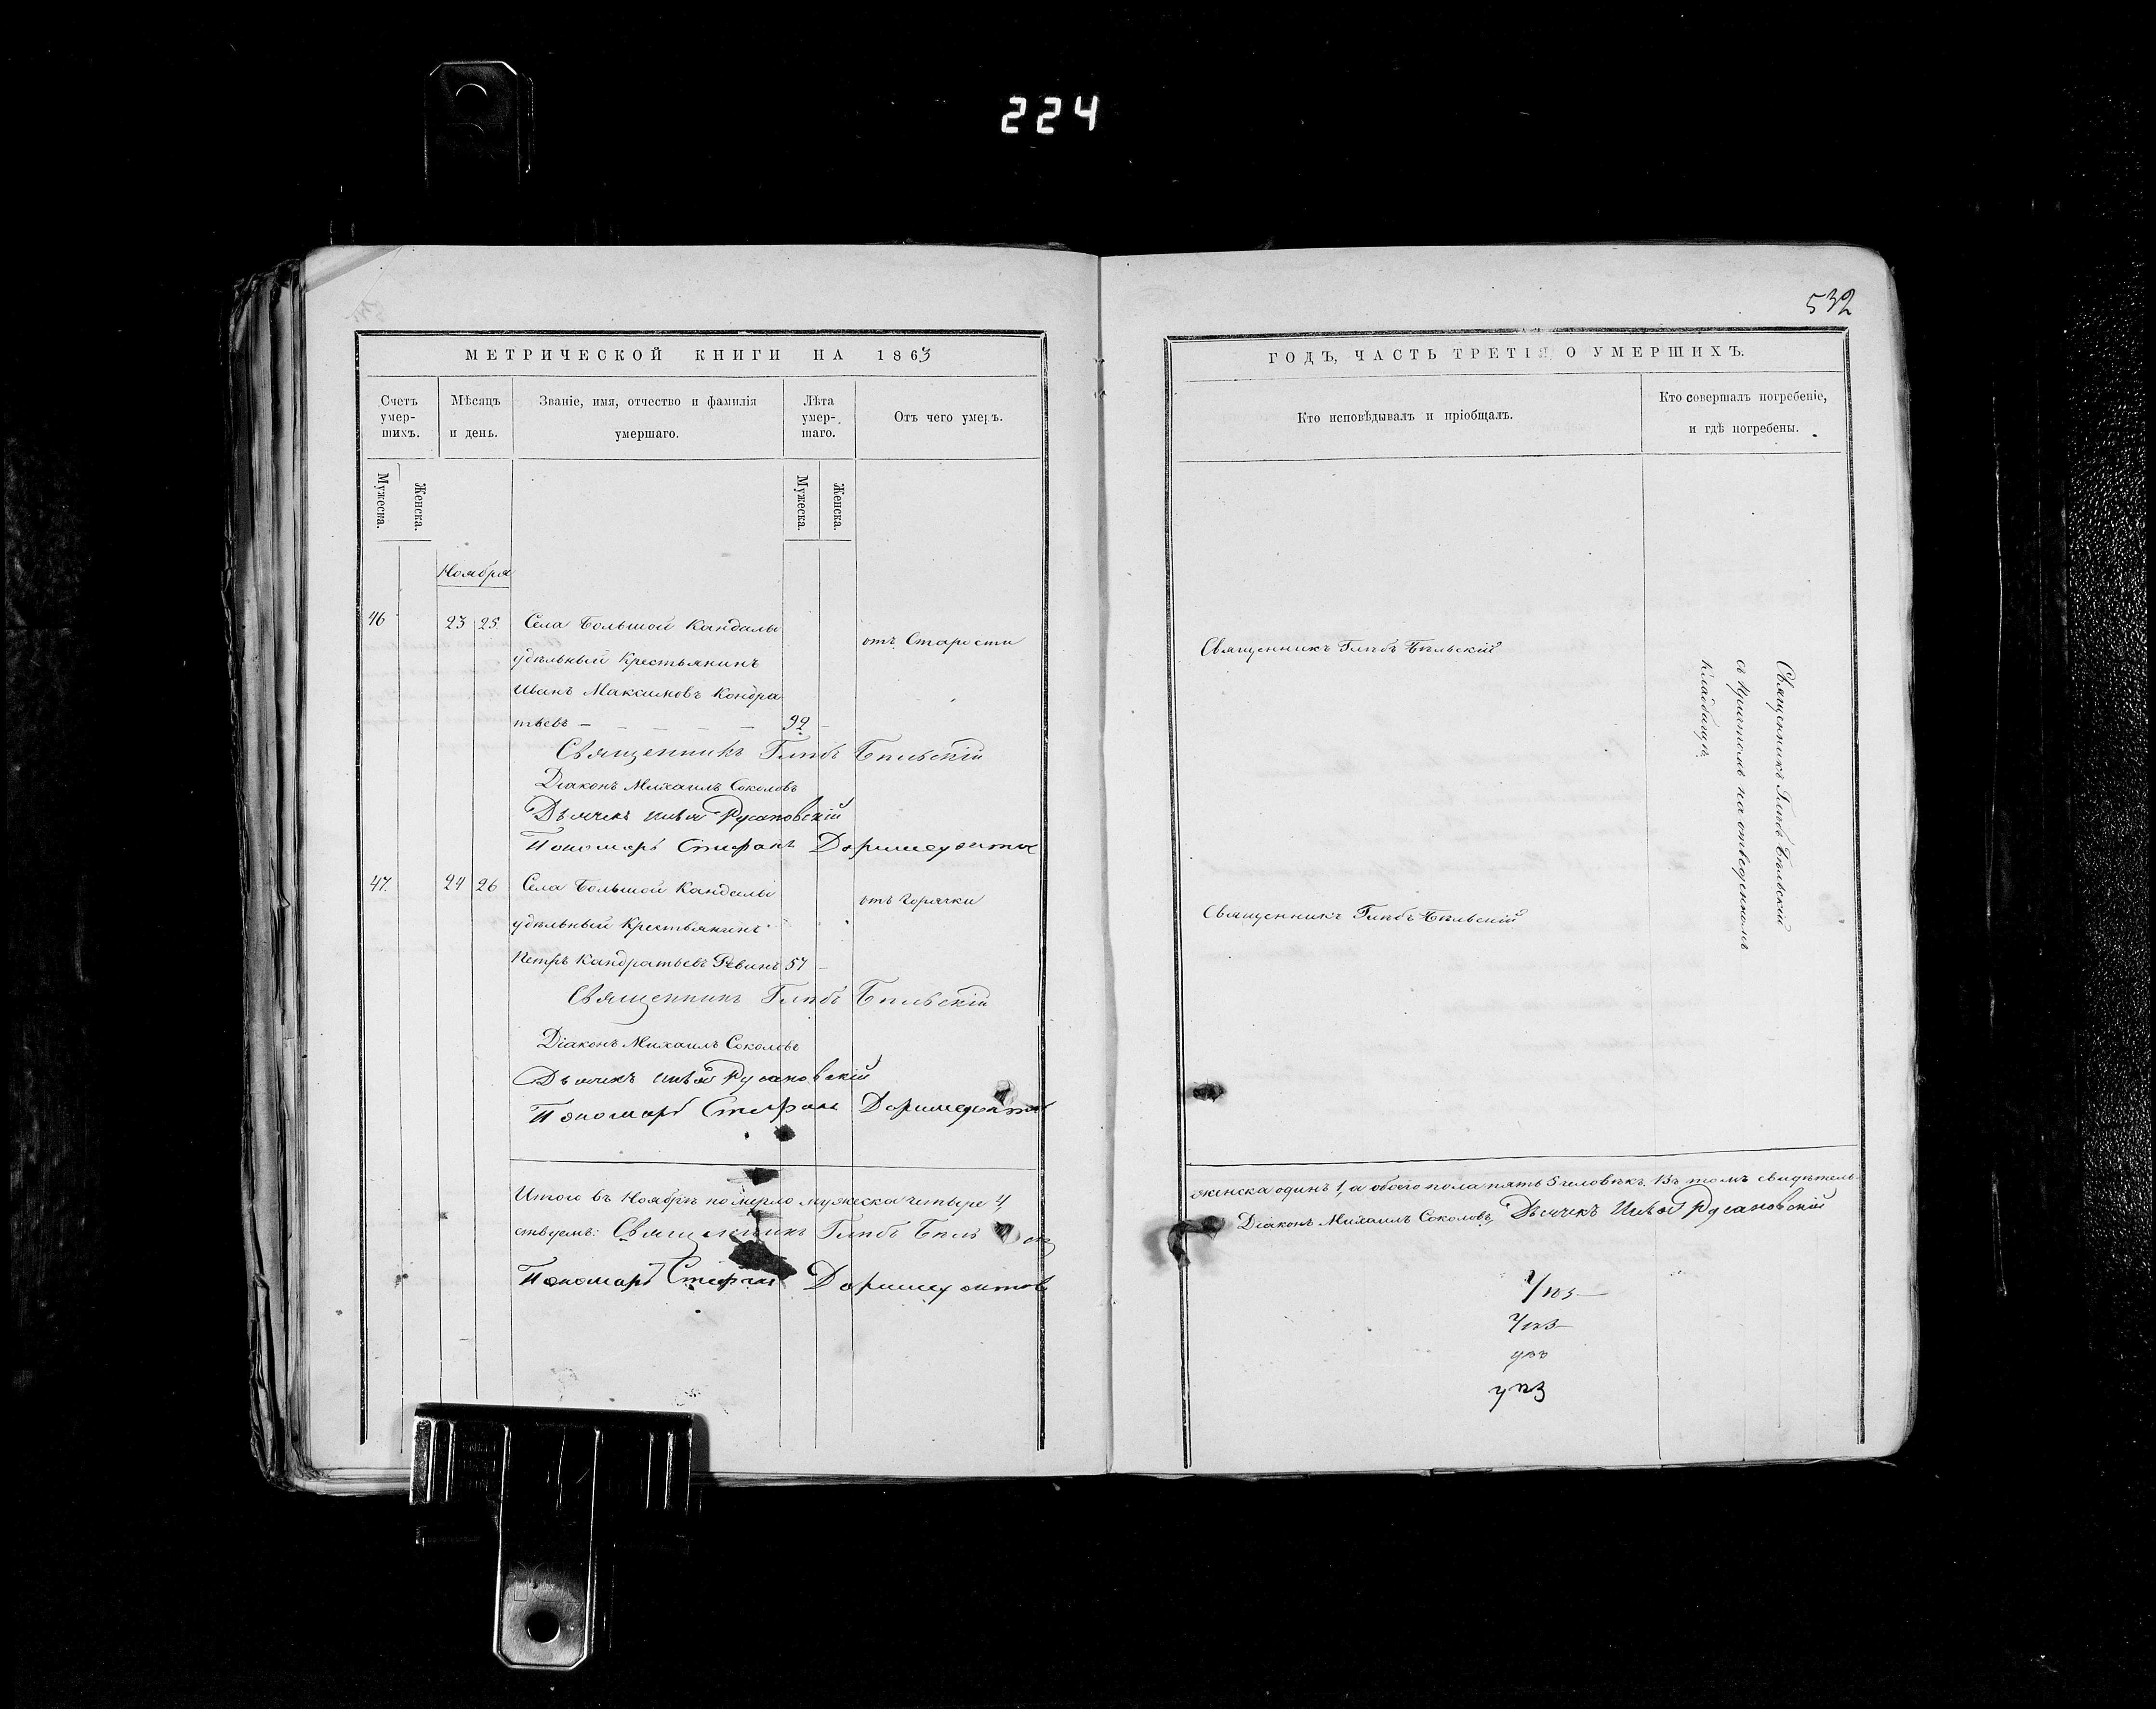 224
532
МЕТРИЧЕСКОЙ КНИГИ НА 1863
Счетъ умер-шихъ.
Мѣсяцъ и день.
Званіе, имя, отчество и фамилія умершаго.
Лѣта умер-шаго.
Отъ чего умеръ.
Мужеска.
Женска.
Мужеска.
Женска.
Ноября
46 23 25. Села Большой Кандалы
отъ Старости
удѣльный Крестьянинъ
Иванъ Максимовъ Кондра
тьевъ — 92
Священникъ Глѣбъ Бѣльскій
Діаконъ Михаилъ Соколовъ
Дьячекъ Русановскій
Пономарь Стефанъ Доримедонтов
47. 24 26 Села Большой Кандалы
отъ горячки
удѣльный Крестьянинъ
Петръ Кандратьевъ 57
Священникъ Глѣбъ Бѣльскій
Діаконъ Михаилъ Соколовъ
Дьячекъ Русановскій
Пономарь Стефанъ Доримедонтов
Итого въ Ноябрѣ померло мужеска четыре 4,
ствуемъ: Священникъ Глѣбъ
Пономарь Стефанъ Доримедонтов
ГОДЪ, ЧАСТЬ ТРЕТІЯ О УМЕРШИХЪ.
Кто исповѣдывалъ и пріобщалъ.
Кто совершалъ погребеніе, и гдѣ погребены.
Священникъ Глѣбъ Бѣльскій
Священникъ Глѣбъ Бѣльскій
Священникъ Глѣбъ Бѣльскій
съ Причтомъ на отведенномъ
кладбищѣ.
женска одинъ 1, а обоего пола пять 5 человѣкъ. Въ томъ свидѣтель
Діаконъ Михаилъ Соколовъ, Дьячекъ Русановскій